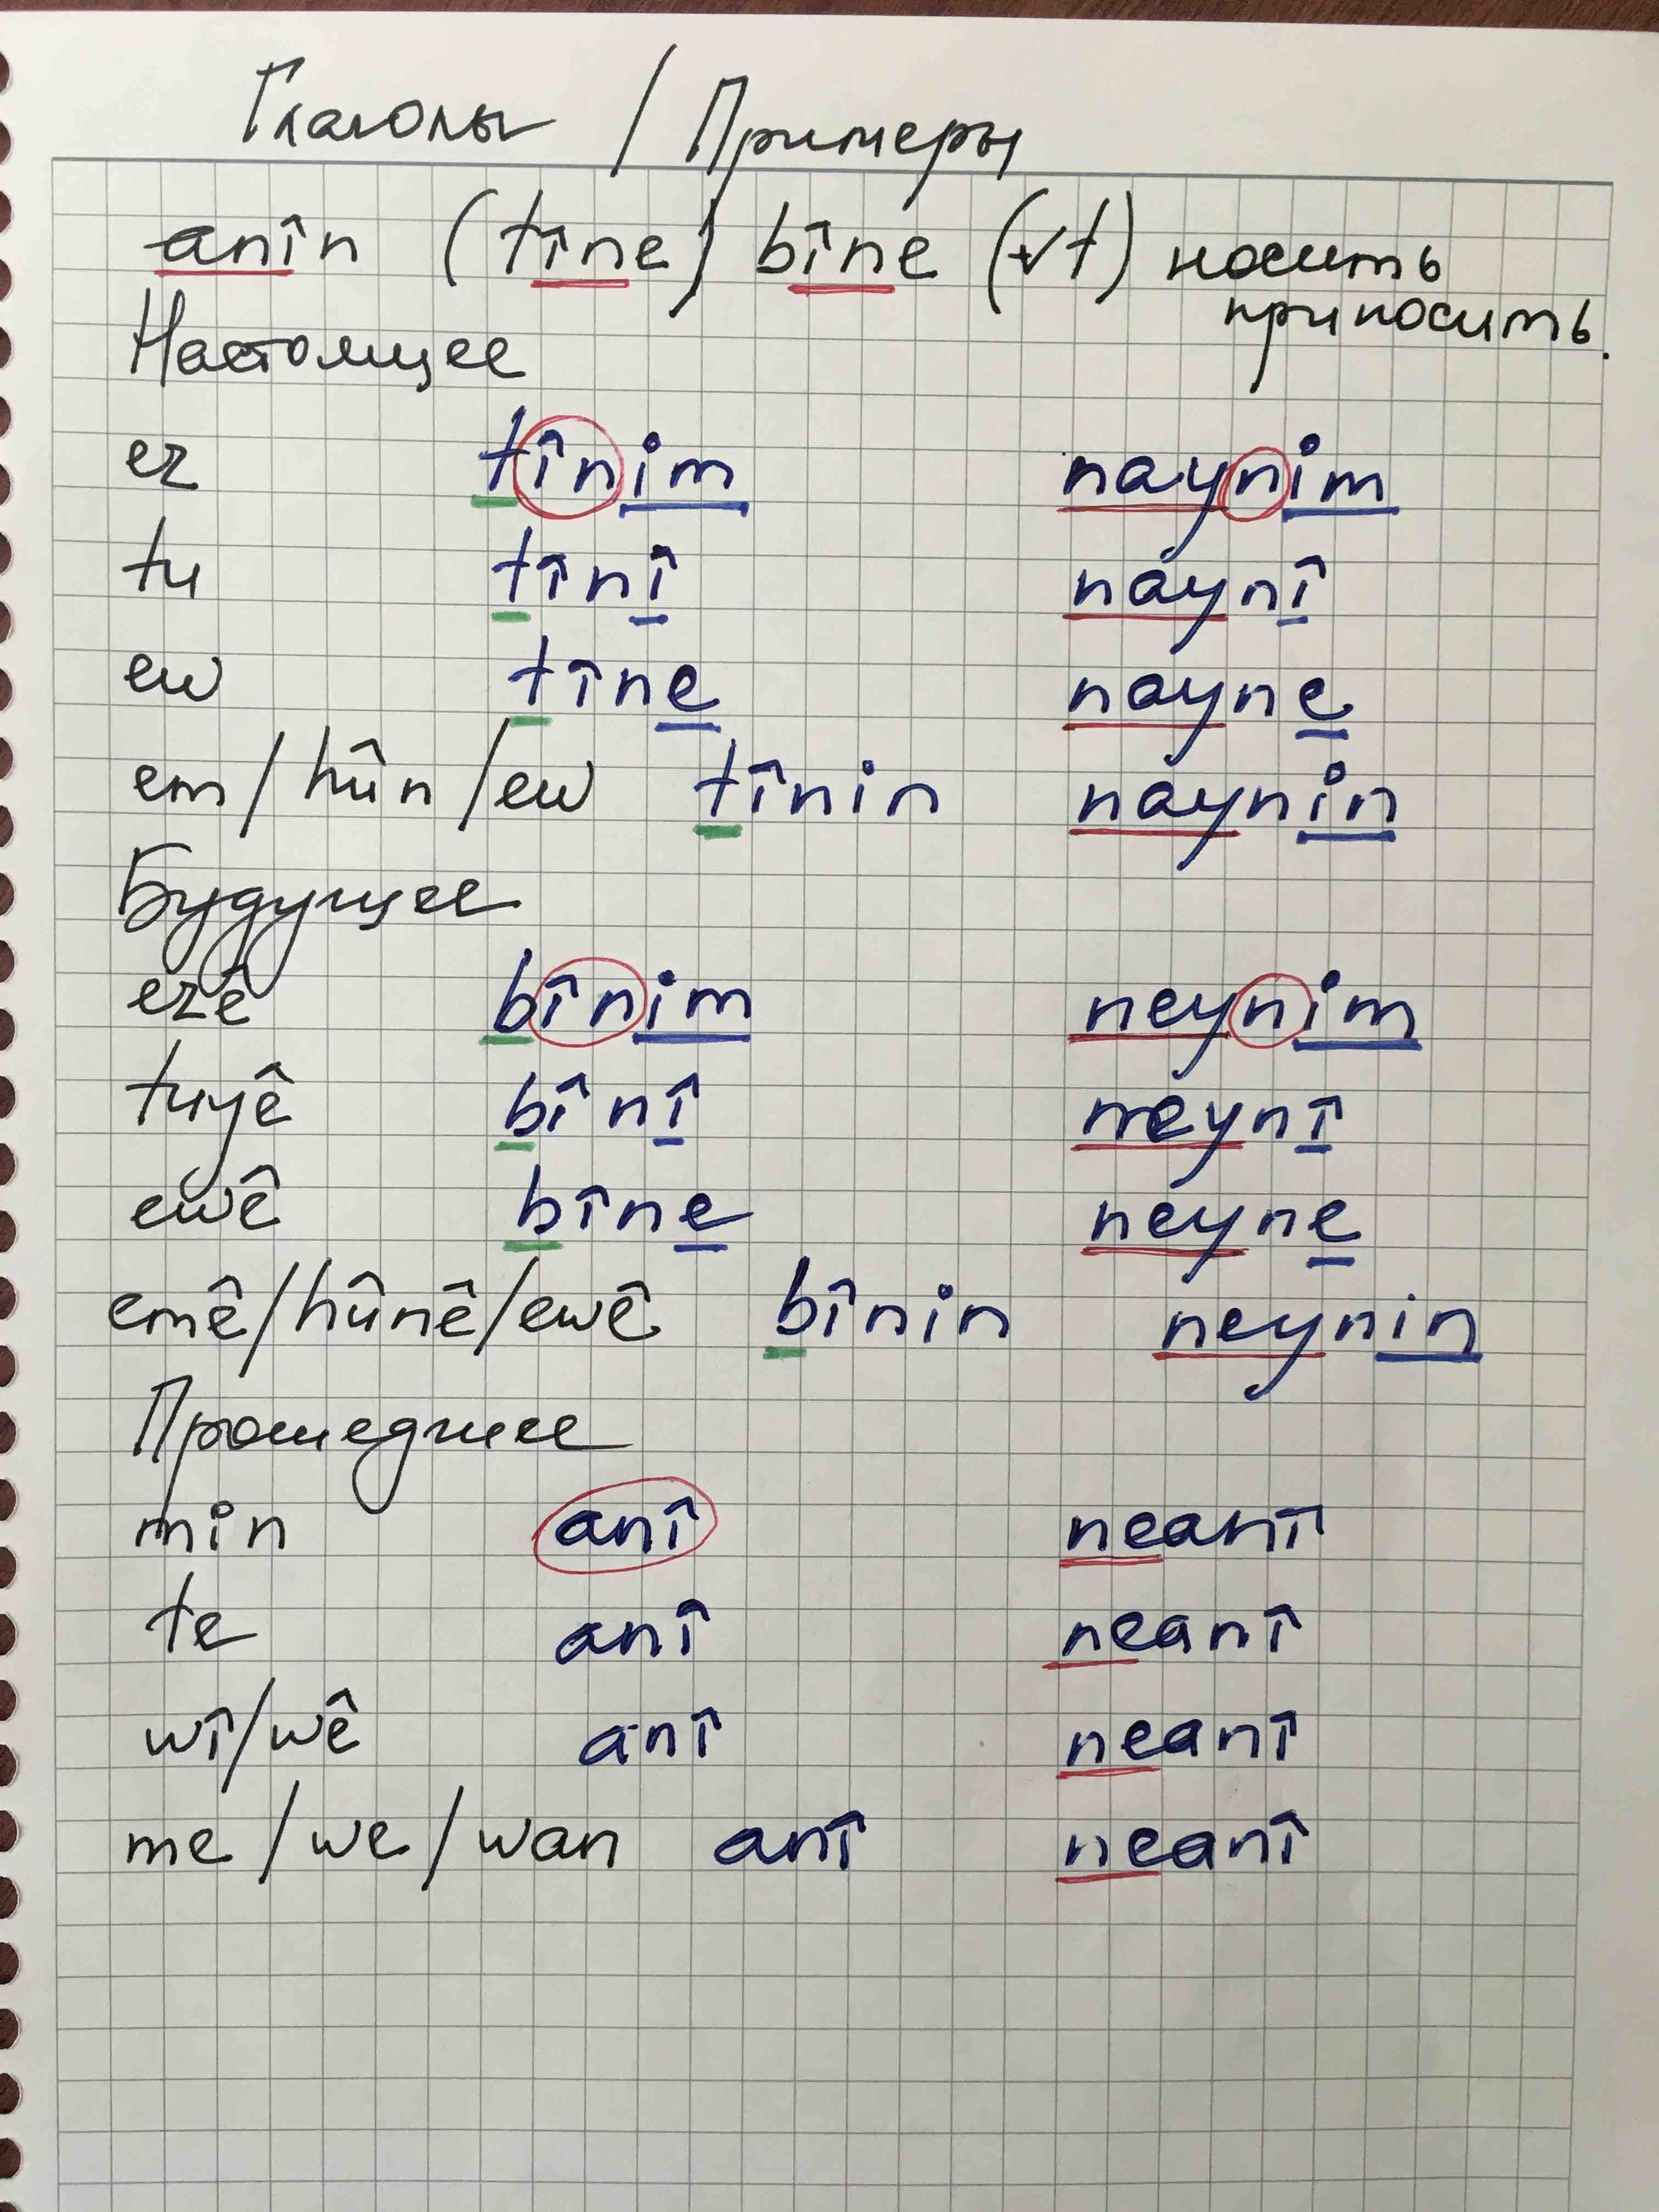 Глаголы / Примеры
anîn (tîne) bîne (vt) носить
приносить.
Настоящее
ez tînim naynim
tu tînî naynî
ew tîne nayne
em / hûn / ew tînin naynin
Будущее
ezê bînim neynim
tuyê bînî neynî
ewê bîne neyne
emê/hûnê/ewê bînin neynin
Прошедшее
min anî neanî
te anî neanî
wî/wê anî neanî
me / we / wan anî neanî